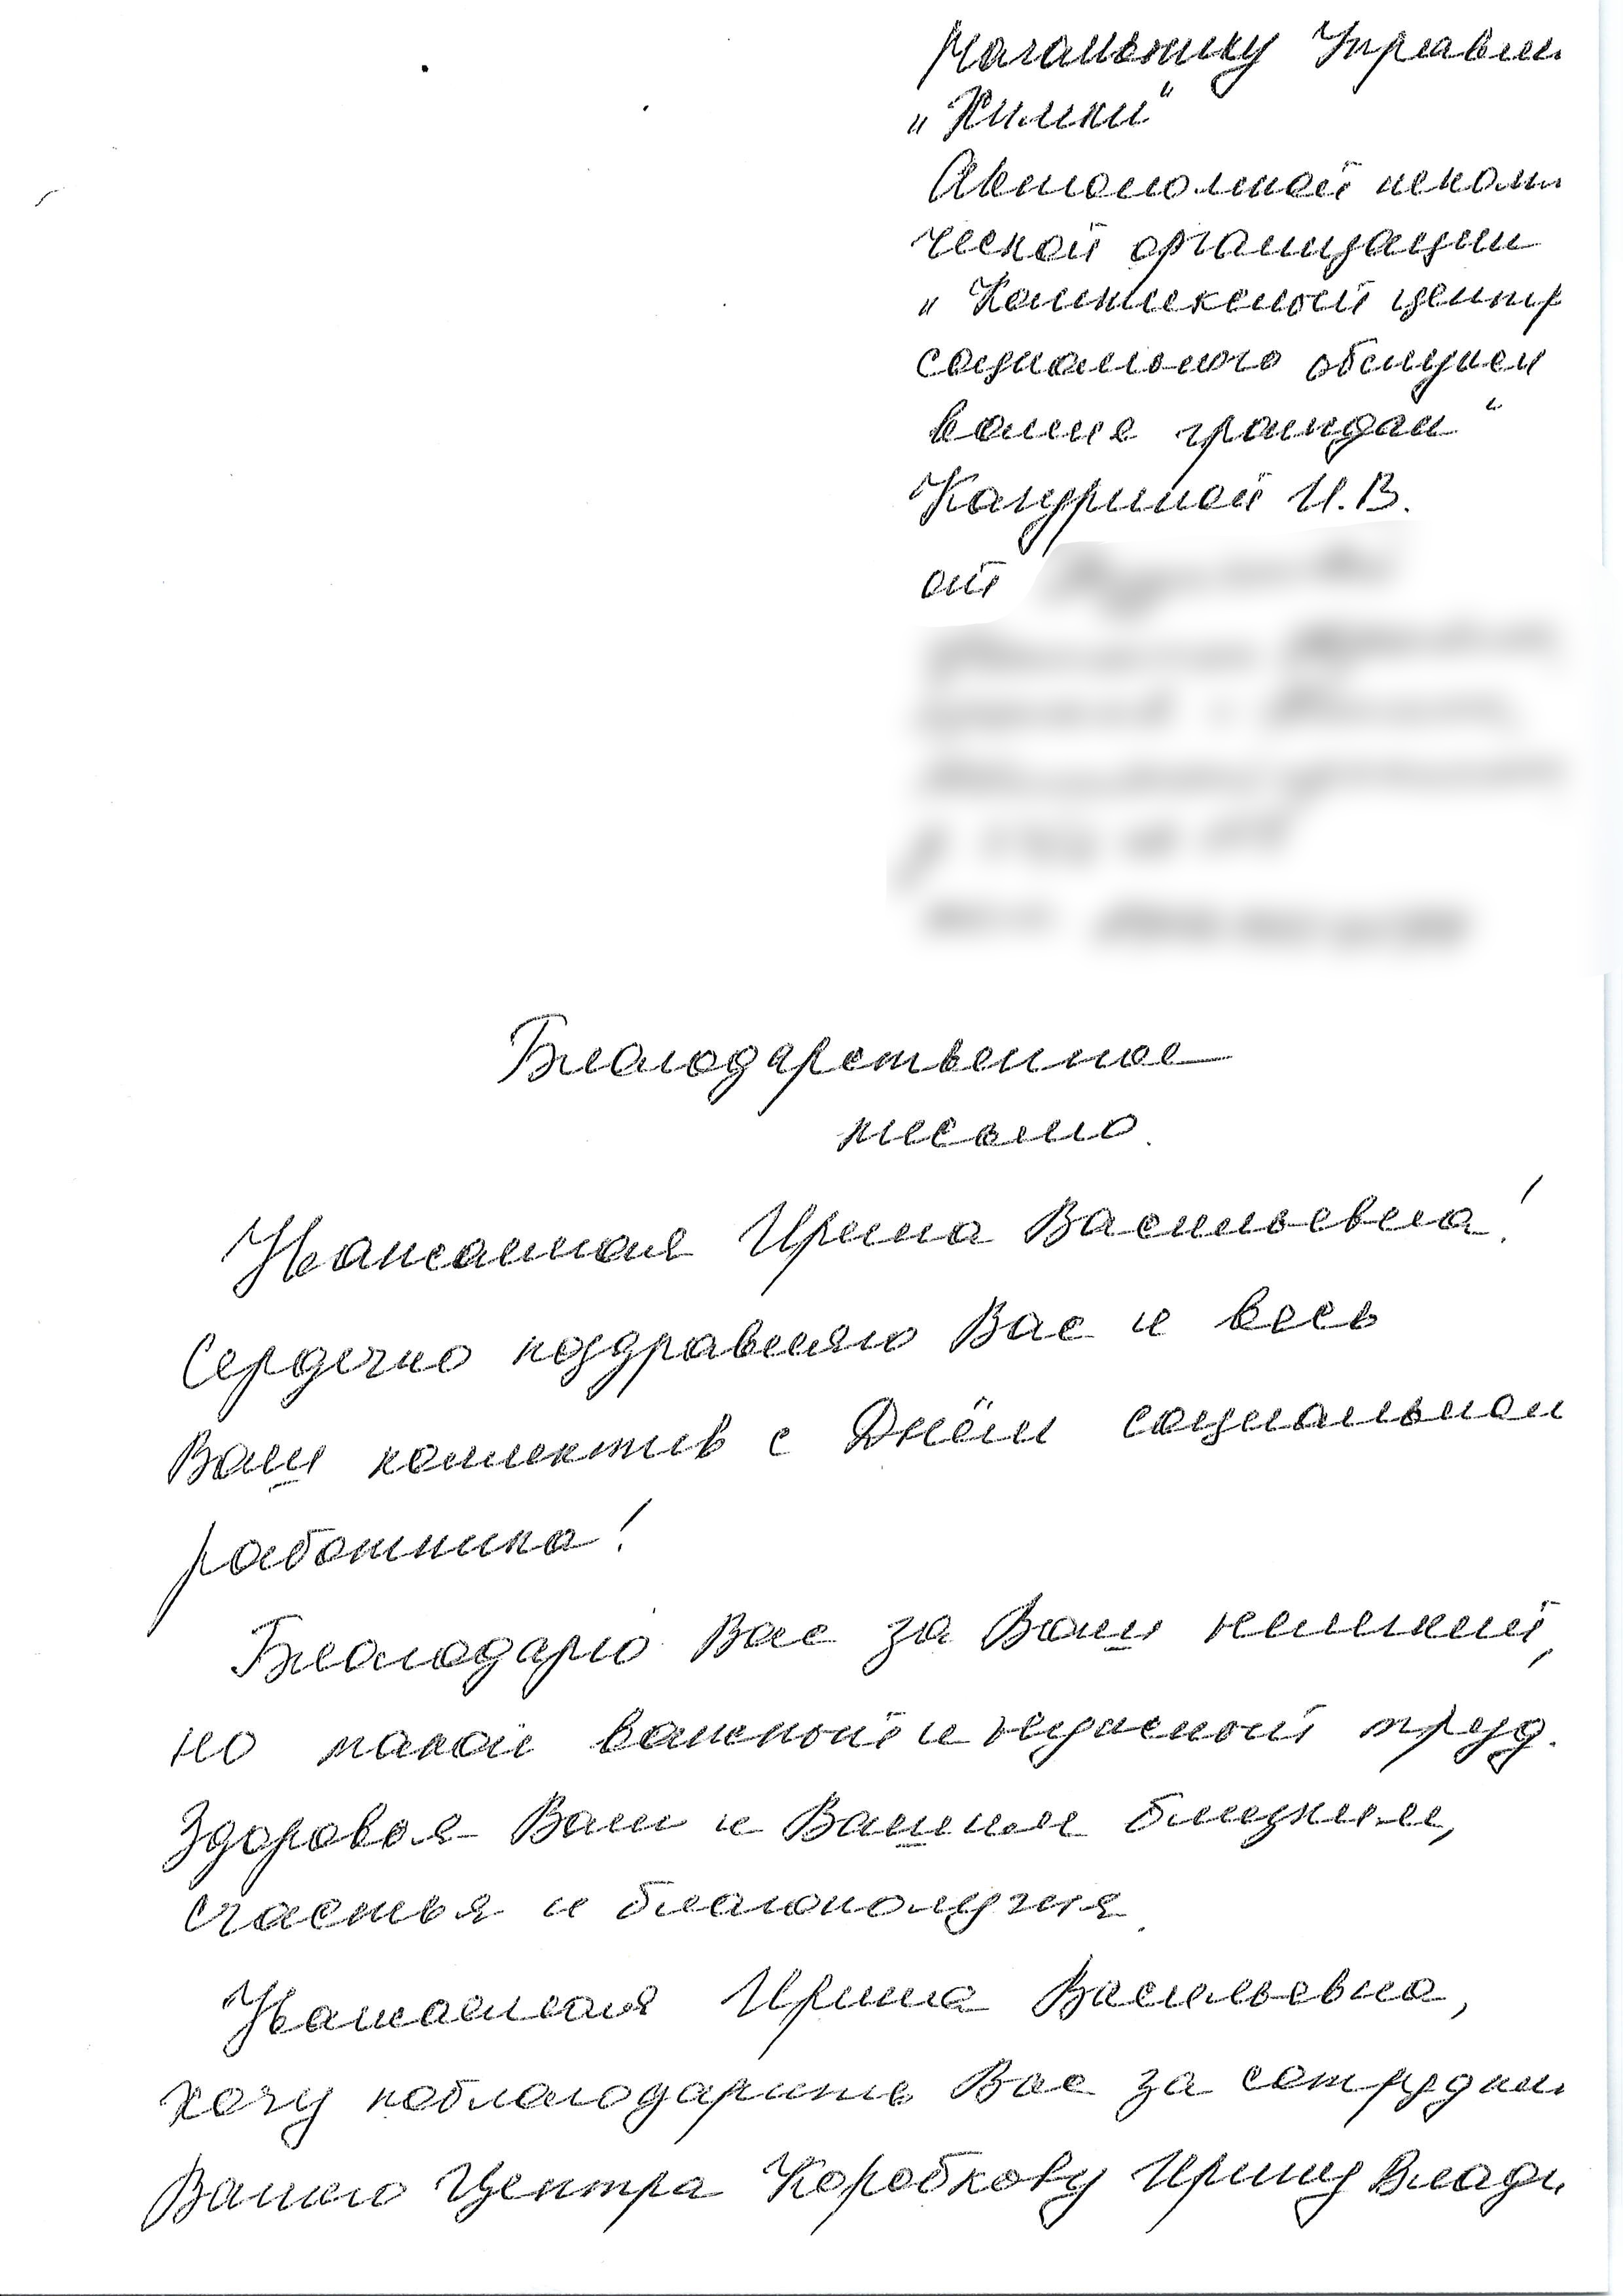 Начальнику Управлен
„Химки"
Автономной неком
ческой организации
„Комплексный центр
социального обслужи
вание граждан"
Кануриной И.В.
от
Благодарственное
письмо.
Уважаемая Ирина Васильевна!
Сердечно поздравляю Вас и весь
Ваш коллектив с Днём социальной
работника!
Благодарю Вас за Ваш нелегкий,
но такой важный и нужный труд.
Здоровья Вам и Вашим близким,
счастья и благополучия.
Уважаемая Ирина Васильевна,
хочу поблагодарить Вас за сотрудни
Вашего Центра Коробкову Ирину Влади